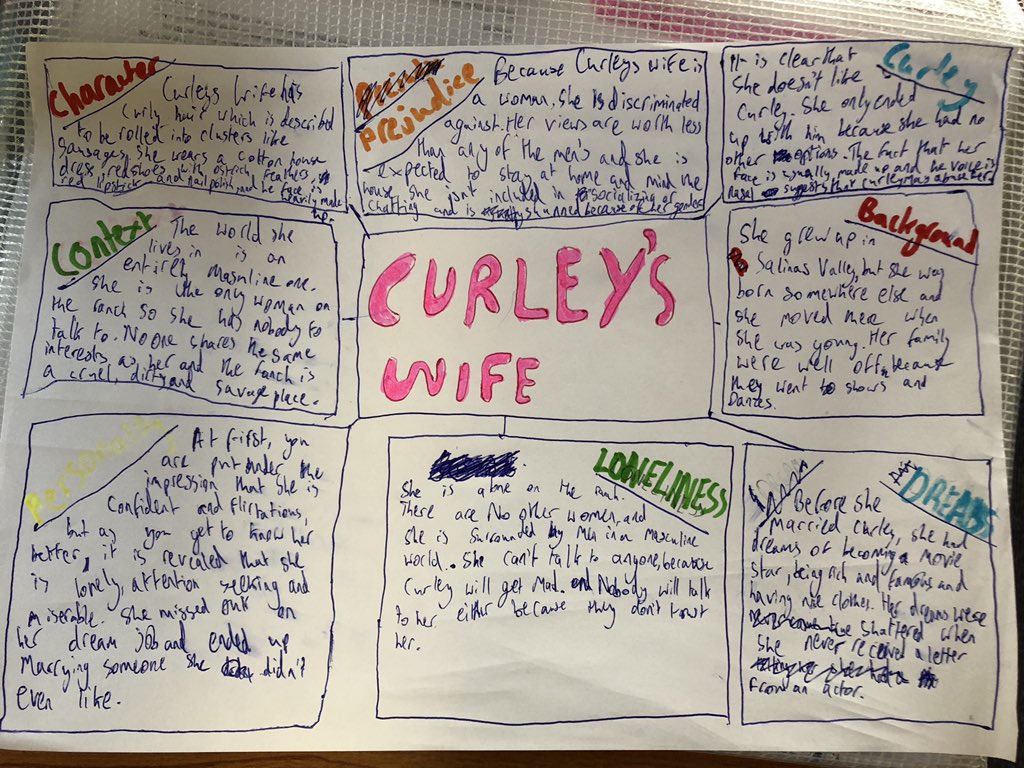 Character
Curleys Wife has
Curly hair which is described
to be rolled into clusters like
sausages. She wears a cotton house
dress, red shoes with ostrich feathers,
red lipstick and nail polish, and he face is
heavily made
up.
Prejudice
Because Curleys wife is
a woman, she is discriminated
against. Her views are worth less
than any of the men's and she is
expected to stay at home and mind the
house. She isn't included in socializing or
chatting and is shunned because of her gender
Curley
It is clear that
she doesn't like
Curley. She only ended
up with him because she had no
other options. The fact that her
face is usually made up and he voice is
nasal suggests that curley has a
Context
The world she
lives in is an
entirely one.
she is the only woman on
the ranch so she has nobody to
talk to. No one shares the same
interests as her and the ranch is
a cruel, dirty and savage place.
CURLEY'S
WIFE
Background
She grew up in
Salinas Valley, but she was
born somewhere else and
she moved there when
she was young. Her family
were well off because
they went to shows and
Dances.
Personality
At first, you
are put under the
impression that she is
Confident and
but as you get to know her
better, it is revealed that she
is lonely, attention seeking and
miserable. She missed out on
her dream job and ended up
Marrying someone she didn't
even like.
LONELINESS
She is alone on the
There are No other women, and
she is surrounded by Men in a Masculine
world. She can't talk to anyone, because
Curley will get Mad. Nobody will talk
to her either because they don't trust
her.
DREAMS
Before she
married Curley, she had
dreams of becoming a movie
star, being rich and famous and
having nice clothes. Her dreams were
shattered when
she never received a letter
from an actor.